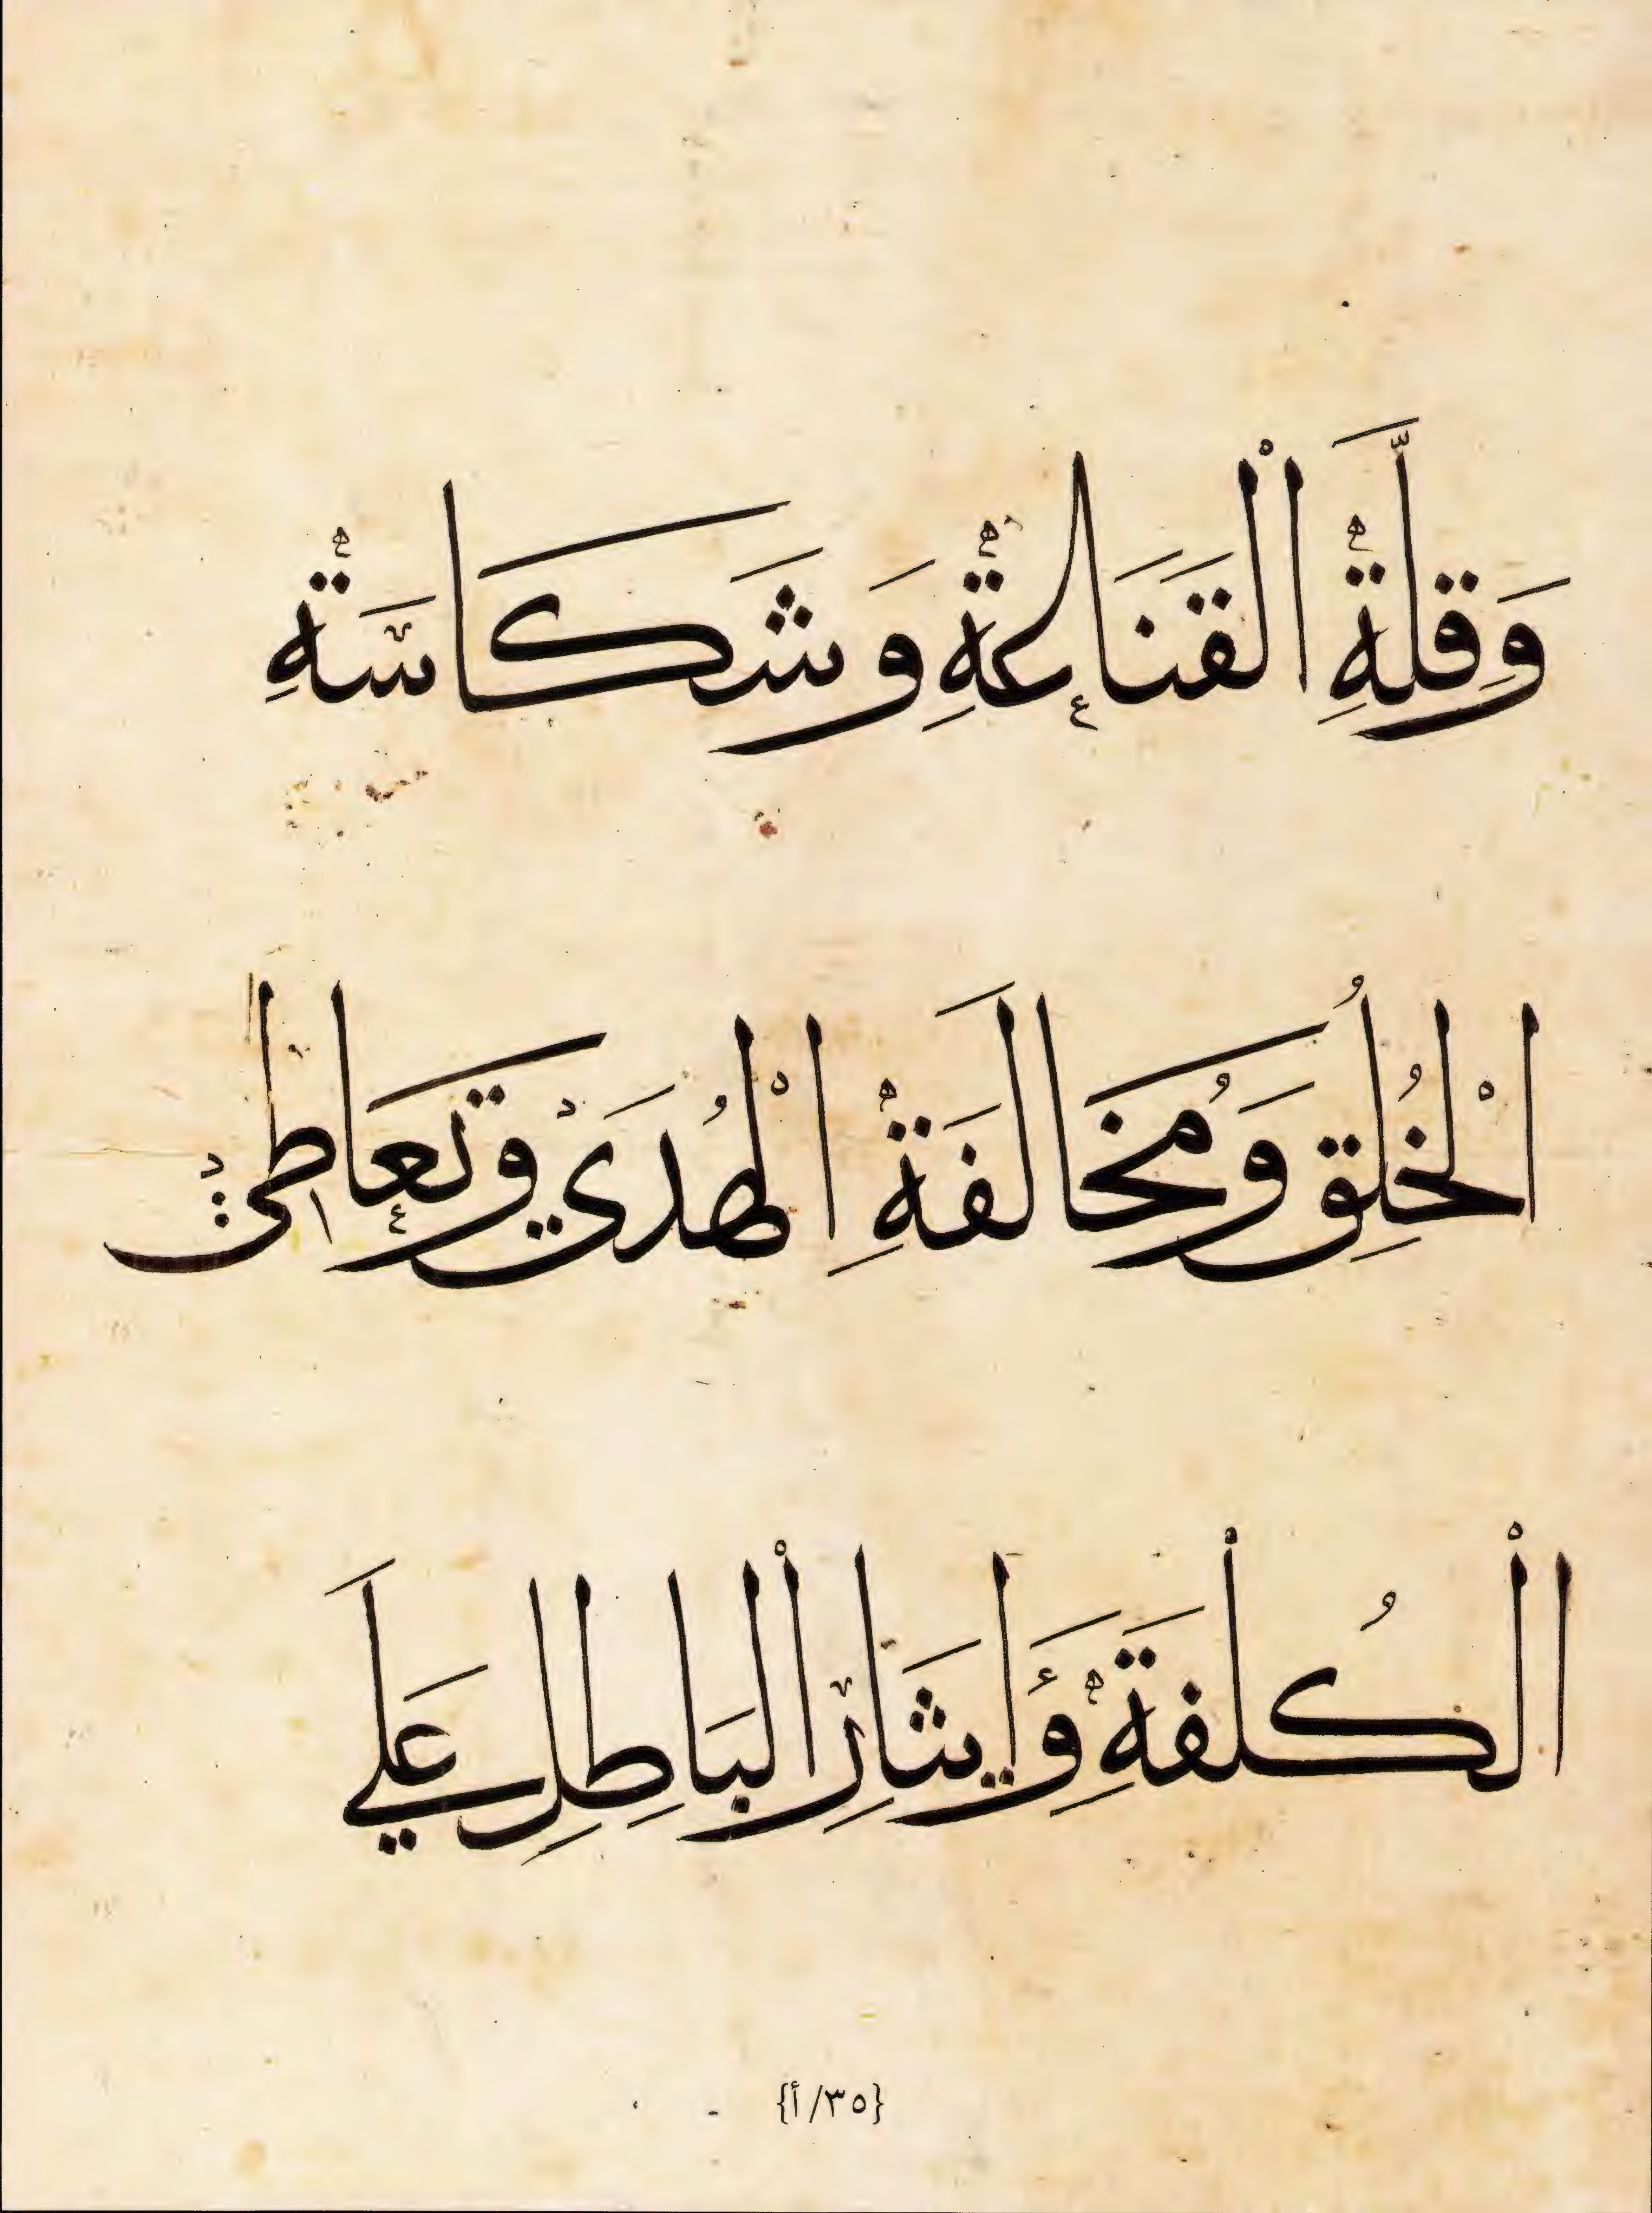 وَقِلَّةِ الْقَنَاعَةِ وَشَكَاسَةِ
الْخُلُقِ وَمُخَالَفَةِ الْهُدَيْ وَتَعَاطِيْ
الْكُلْفَةَِ وَإِيثَارِ الْبَاطِلِ عَلَي
{٣٥/أ}